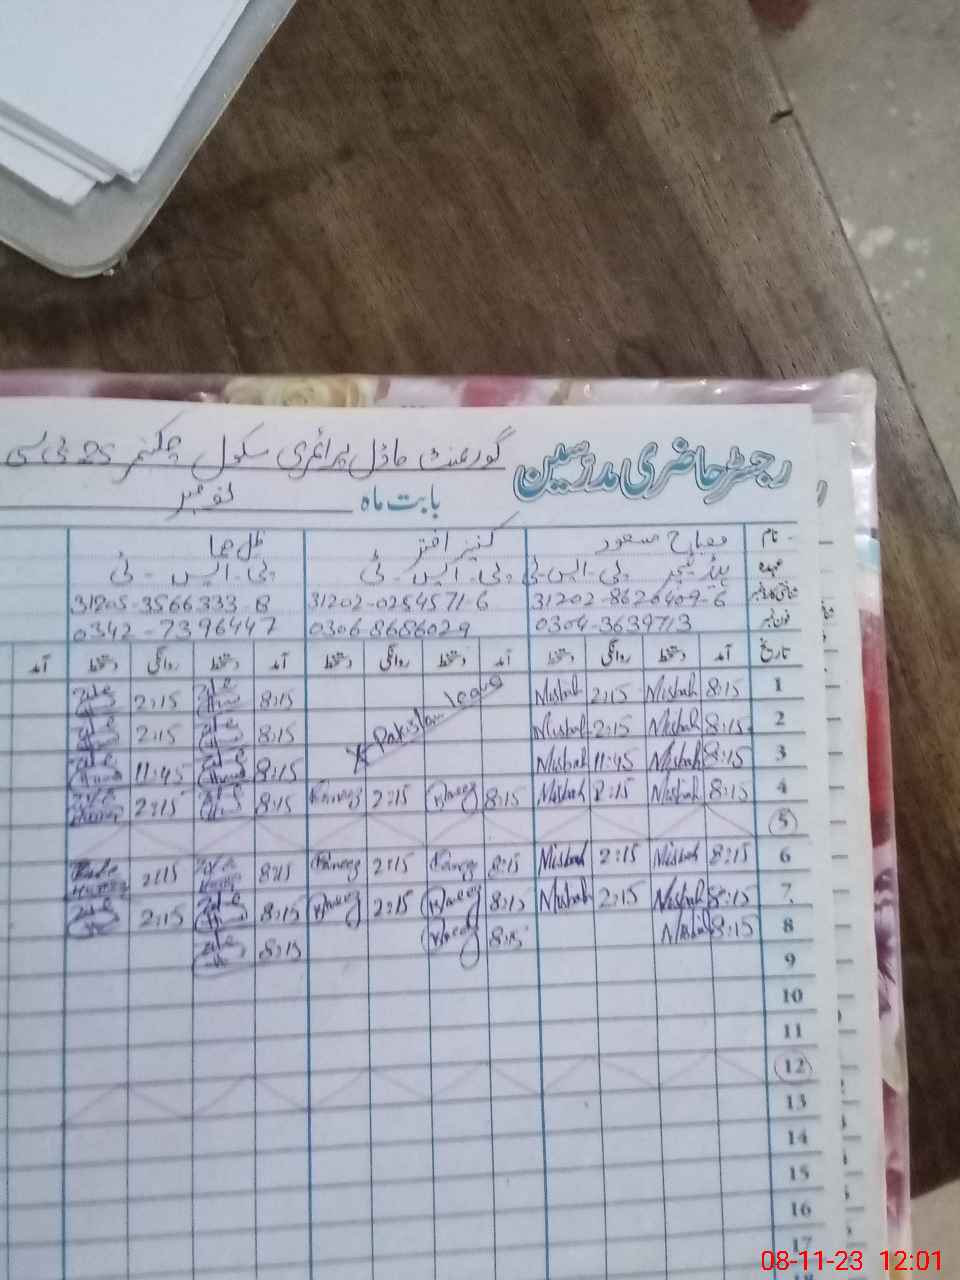 رجسٹر حاضری مدرسین گورنمنٹ ماڈل پرائمری سکول چکنمبر 25 ٹی سی
بابت ماہ نومبر
نام مصباح مسعود کنیز اختر ظل ہما
عہدہ ہیڈ ٹیچر پی-ایس-ٹی پی-ایس-ٹی پی-ایس-ٹی
شناختی کارڈ نمبر 31202-8626409-6 31202-0254571-6 31205-3566333-8
فون نمبر 0304-3639713 0306-8686029 0342-7396447
تاریخ آمد دستخط روانگی دستخط آمد دستخط روانگی دستخط آمد دستخط روانگی دستخط آمد
1 8:15 Misbah 2:15 Misbah 8:15 2:15
2 8:15 Misbah 2:15 Misbah X Pakistan leave 8:15 2:15
3 8:15 Misbah 11:45 Misbah 8:15 11:45
4 8:15 Misbah 2:15 Misbah 8:15 Kaneez 2:15 Kaneez 8:15 2:15
5
6 8:15 Misbah 2:15 Misbah 8:15 Kaneez 2:15 Kaneez 8:15 2:15
7 8:15 Misbah 2:15 Misbah 8:15 Kaneez 2:15 Kaneez 8:15 2:15
8 8:15 Misbah 8:15 Kaneez 8:15
9
10
11
12
13
14
15
16
17
08-11-23 12:01